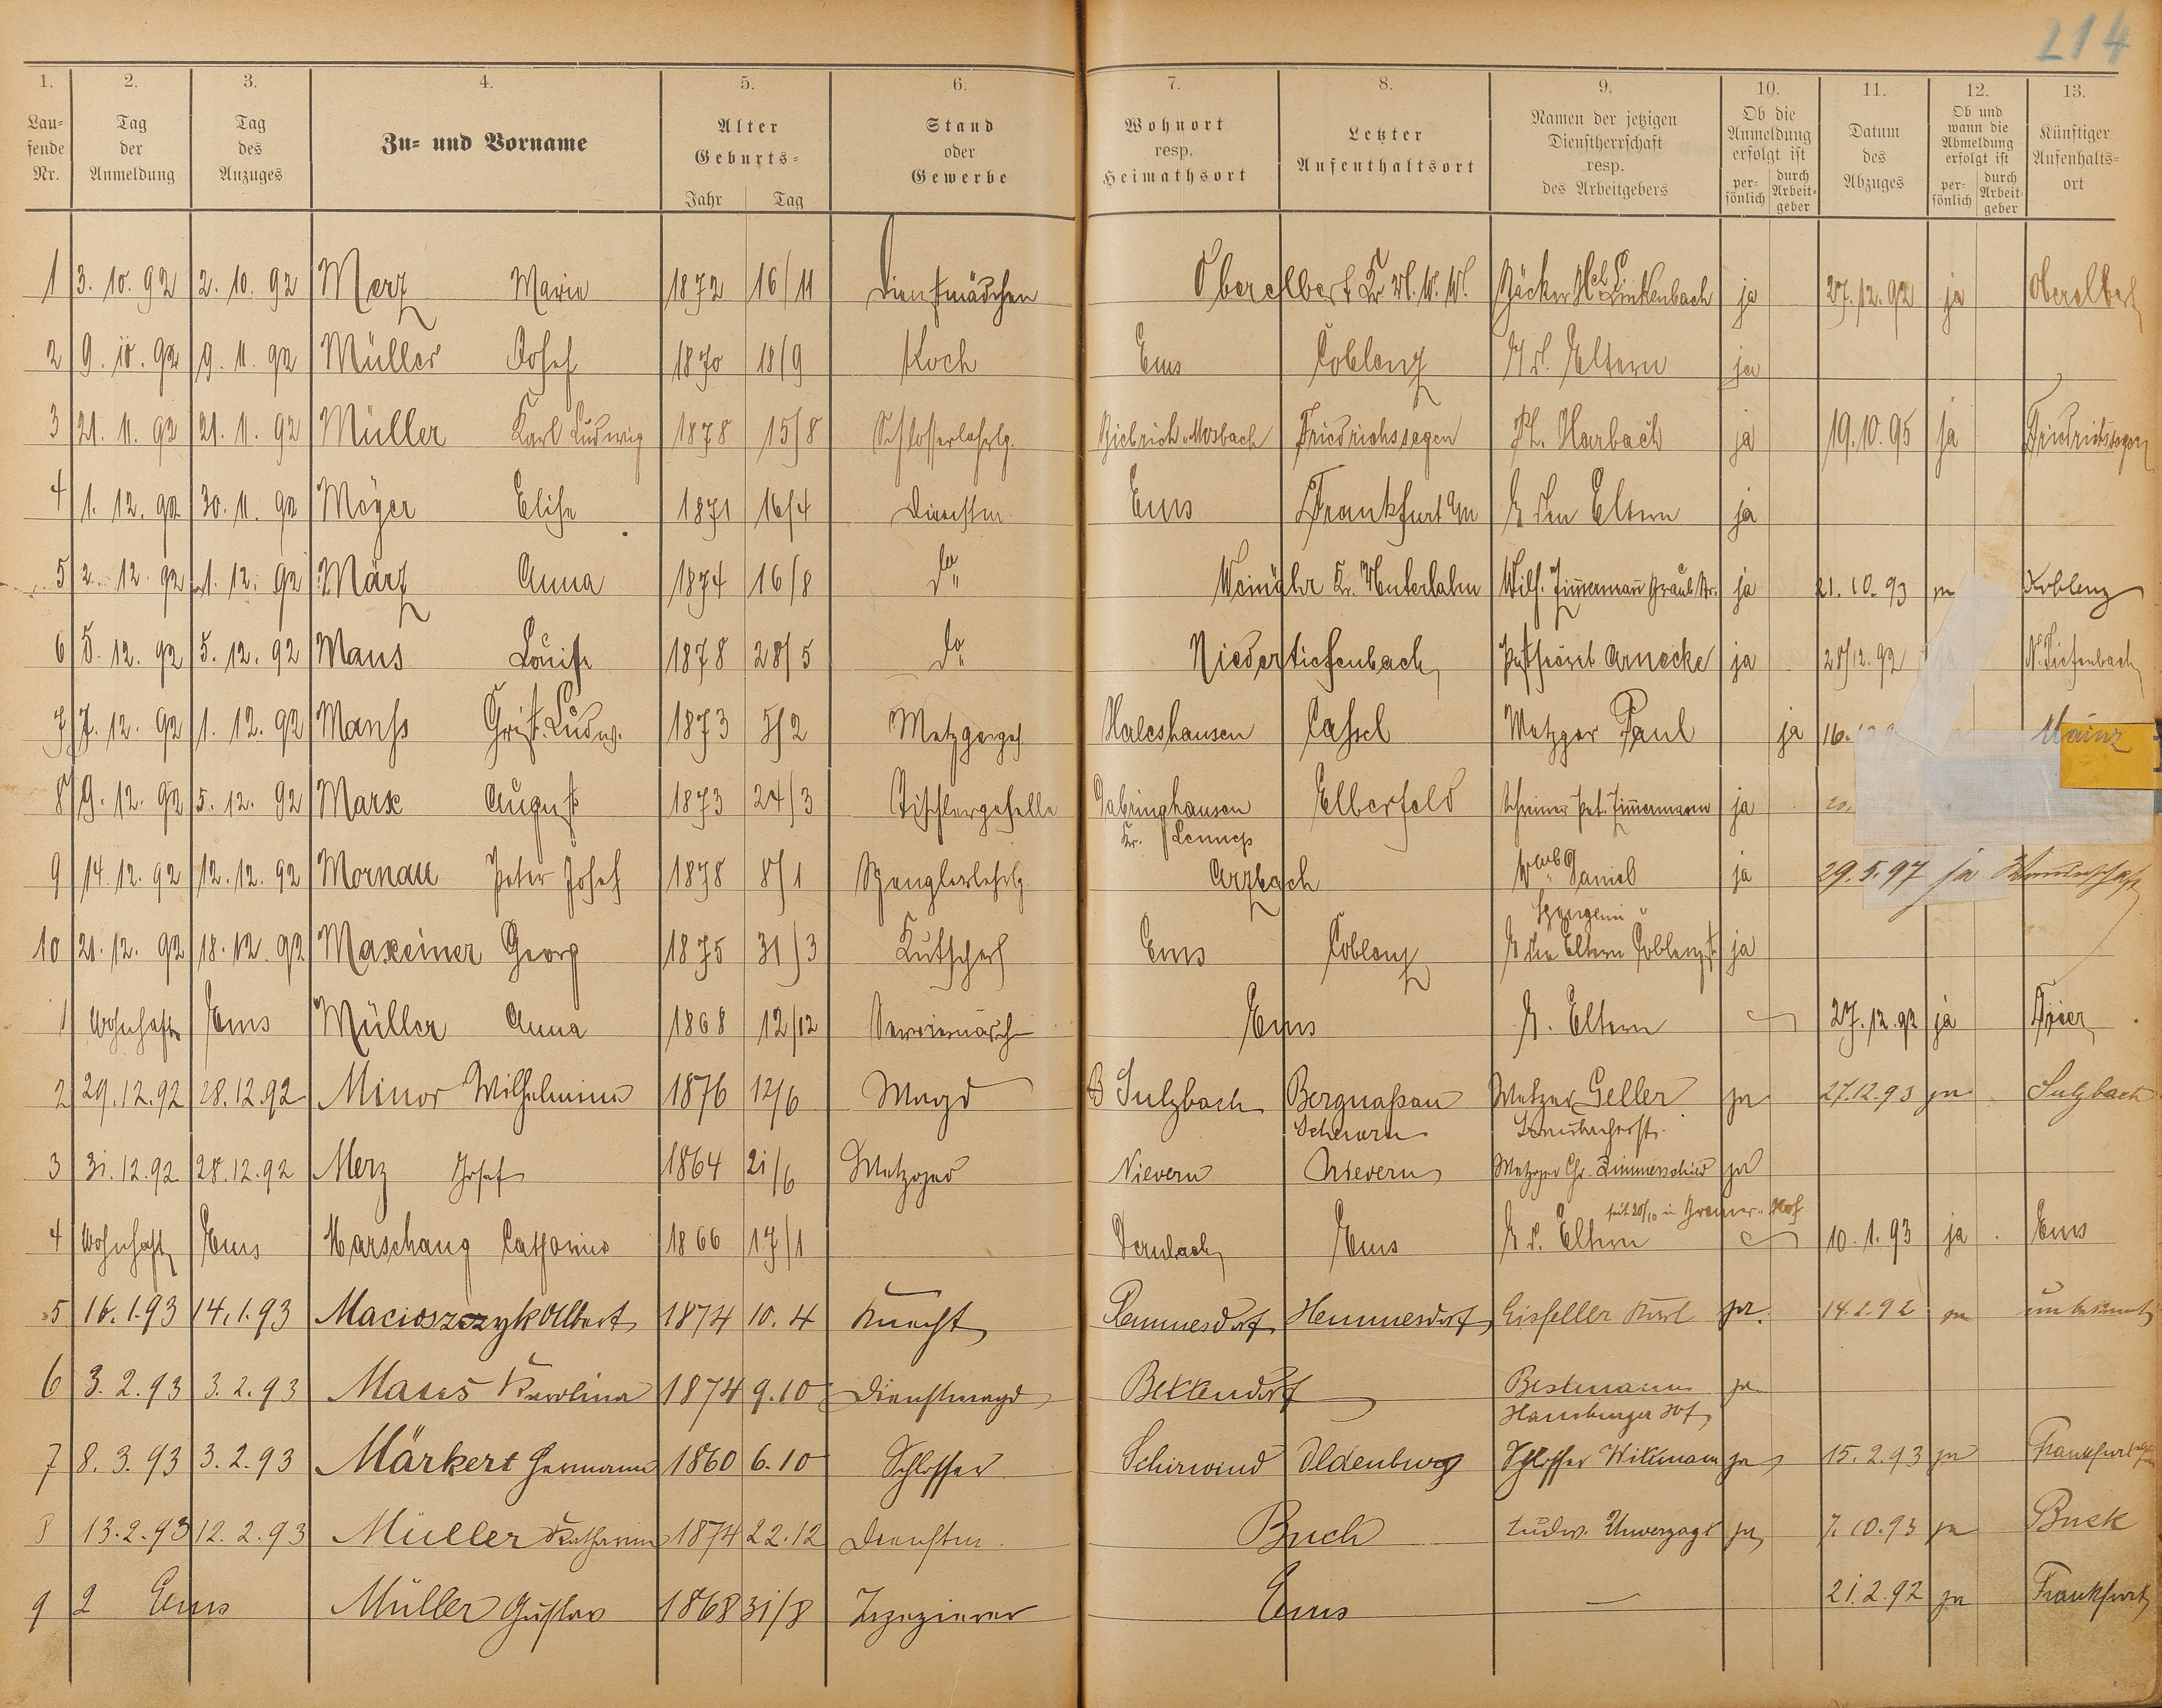 214
1. 2. 3. 4. 5. 6. 7. 8. 9. 10. 11. 12. 13.
Lau-
fende
Nr.
Tag
der
Anmeldung
Tag
des
Anzuges
Zu- und Vorname
Alter
Geburts-
Jahr Tag
Stand
oder
Gewerbe
Wohnort
resp.
Heimathsort
Letzter
Aufenthaltsort
Namen der jetzigen
Dienstherrschaft
resp.
des Arbeitgebers
Ob die
Anmeldung
erfolgt ist
per-
sönlich
durch
Arbeit-
geber
Datum
des
Abzuges
Ob und
wann die
Abmeldung
erfolgt ist
per-
sönlich
durch
Arbeit-
geber
Künftiger
Aufenhalts-
ort
1 3. 10. 92 2. 10. 92 Merz Marie 1872 16/11 Dienstmädchen Oberelbert Bäcker Linkenbach ja 27. 12. 92 ja Oberelbert
2 9. 11. 92 9. 11. 92 Müller Josef 1870 18/9 Koch Ems Coblenz Eltern ja
3 21. 11. 92 21. 11. 92 Müller Karl Ludwig 1878 15/8 Schlosserlehrlg. Biebrich-Mosbach Friedrichssegen Ph. Harbach ja 19. 10. 95 ja Friedrichssegen
4 1. 12. 92 30. 11. 92 Meyer Elise 1871 16/4 Dienstm. Ems Frankfurt den Eltern ja
5 2. 12. 92 1. 12. 92 März Anna 1874 16/8 do Weinähr Kr. Unterlahn Wilh. Zimmermann ja 21. 10. 93 ja Koblenz
6 5. 12. 92 5. 12. 92 Maus Louise 1878 28/5 do Niedertiefenbach Arnecke ja 28/12. 92 N. Tiefenbach
7 7. 12. 92 1. 12. 92 Manss Christ. Ludw. 1873 5/2 Metzgerges. Haleshausen Cassel Metzger Paul ja 16. Mainz
8 9. 12. 92 5. 12. 92 Marx August 1873 24/3 Tischlergeselle Dabringhausen Elberfeld Schreiner Pet. Zimmermann ja 20.
Kr. Lennep
9 14. 12. 92 12. 12. 92 Mornau Peter Josef 1878 8/1 Spenglerlehrlg. Arzbach Daniel ja 29. 5. 97 ja Wanderschaft
10 21. 12. 92 18. 12. 92 Maxeiner Georg 1875 31/3 Kutscher Ems Coblenz Eltern ja
1 Wohnhaft Ems Müller Anna 1868 12/12 Ems Eltern 27. 12. 92 ja Trier
2 29. 12. 92 28. 12. 92 Minor Wilhelmine 1876 12/6 Magd Sulzbach Bergnassau Metzger Geller ja 27.12.93 ja Sulzbach
Scheuern
3 31. 12. 92 28. 12. 92 Merz Josef 1864 21/6 Metzger Nievern Nievern Metzger Chr. Zimmerschied ja
seit 20/10 in Bremer-Hof
4 Wohnhaft Ems Marschang Catharina 1866 17/1 Dernbach Ems Eltern 10. 1. 93 ja Ems
5 16. 1.93 14. 1.93 Macioszczyk Albert 1874 10. 4 Knecht Hennesdorf Eisfeller Karl ja. 14. 2. 92 ja unbekannt
6 3. 2. 93 3. 2. 93 Maus Karolina 1874 9. 10 Dienstmagd Bettendorf Bestmann ja
Hamburger Hof
7 8. 3. 93 3. 2. 93 Märkert Hermann 1860 6. 10 Schlosser Schirwind Oldenburg Schlosser Wittmann ja 15. 2. 93 ja Frankfurt
8 13. 2. 93 12. 2. 93 Müller Katharina 1874 22. 12 Dienstm. Buch Ludw. Unverzagt ja 7. 10. 93 ja Buch
9 Ems Müller Gustav 1868 31/8 Tapezierer Ems — 21. 2. 92 ja Frankfurt